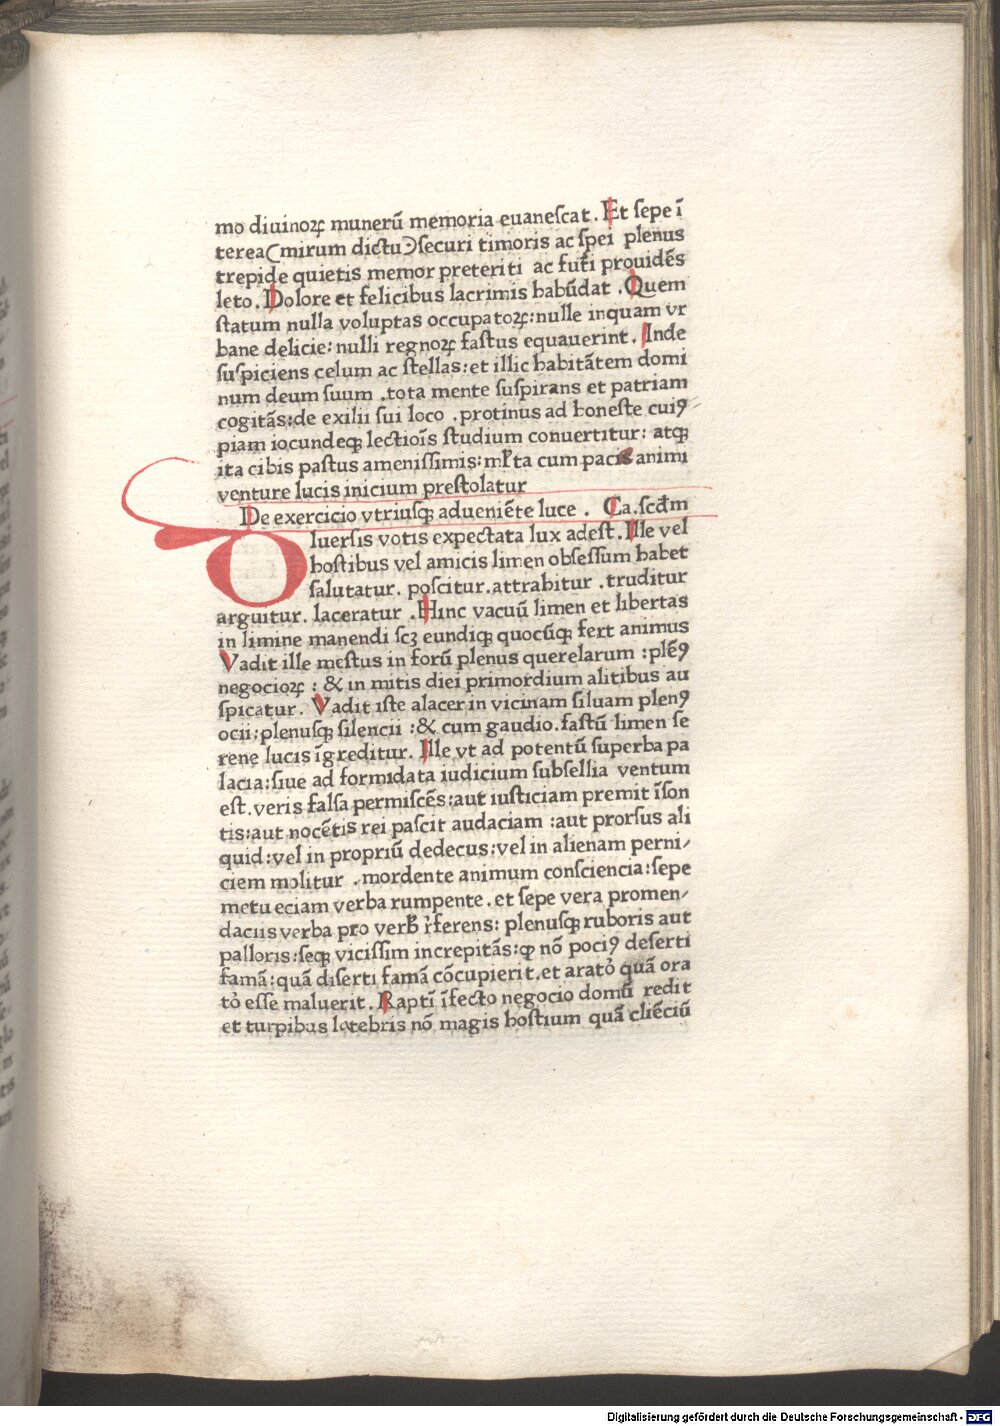 mo diuinoꝝ munerũ memoria euaneſcat. Et ſepe ĩ
terea(mirum dictu)ſecuri timoris ac ſpei plenus
trepide quietis memor preteriti ac futĩ prouidẽs
leto. Dolore et felicibus lacrimis habũdat. Quem
ſtatum nulla voluptas occupatoꝝ: nulle inquam vr
bane delicie: nulli regnoꝝ faſtus equauerint. Inde
ſuſpiciens celum ac ſtellas: et illic habitãtem domi
num deum ſuum. tota mente ſuſpirans et patriam
cogitãs: de exilii ſui loco. protinus ad honeſte cuiꝰ
piam iocundeqꝫ lectiõis ſtudium conuertitur: atqꝫ
ita cibis paſtus ameniſſimis: ml̃ta cum pacis animi
venture lucis inicium preſtolatur
De exercicio vtriuſqꝫ adueniẽte luce. Ca. ſcđm
Diuerſis votis expectata lux adeſt. Ille vel
hoſtibus vel amicis limen obſeſſum habet
ſalutatur. poſcitur. attrahitur. truditur
arguitur. laceratur. Hinc vacuũ limen et libertas
in limine manendi ſcꝫ eundiqꝫ quocũqꝫ fert animus
Vadit ille meſtus in forũ plenus querelarum: plẽꝰ
negocioꝝ: & in mitis diei primordium alitibus au
ſpicatur. Vadit iſte alacer in vicinam ſiluam plenꝰ
ocii: plenuſqꝫ ſilencii: & cum gaudio. faſtũ limen ſe
rene lucis ĩgreditur. Ille vt ad potentũ ſuperba pa
lacia: ſiue ad formidata iudicium ſubſellia ventum
eſt. veris falſa permiſcẽs: aut iuſticiam premit ĩſon
tis: aut nocẽtis rei paſcit audaciam: aut prorſus ali
quid: vel in propriũ dedecus: vel in alienam perni/
ciem molitur. mordente animum conſciencia: ſepe
metu eciam verba rumpente. et ſepe vera promen/
daciis verba pro verb̃ r̃ferens: plenuſqꝫ ruboris aut
palloris: ſeqꝫ viciſſim increpitãs: ꝙ nõ pociꝰ deſerti
famã: quã diſerti famã cõcupierit. et aratõ quã ora
tõ eſſe maluerit. Raptĩ ĩfecto negocio domũ redit
et turpibus latebris nõ magis hoſtium quã cliẽciũ
Digitalisierung gefördert durch die Deutsche Forschungsgemeinschaft - DFG